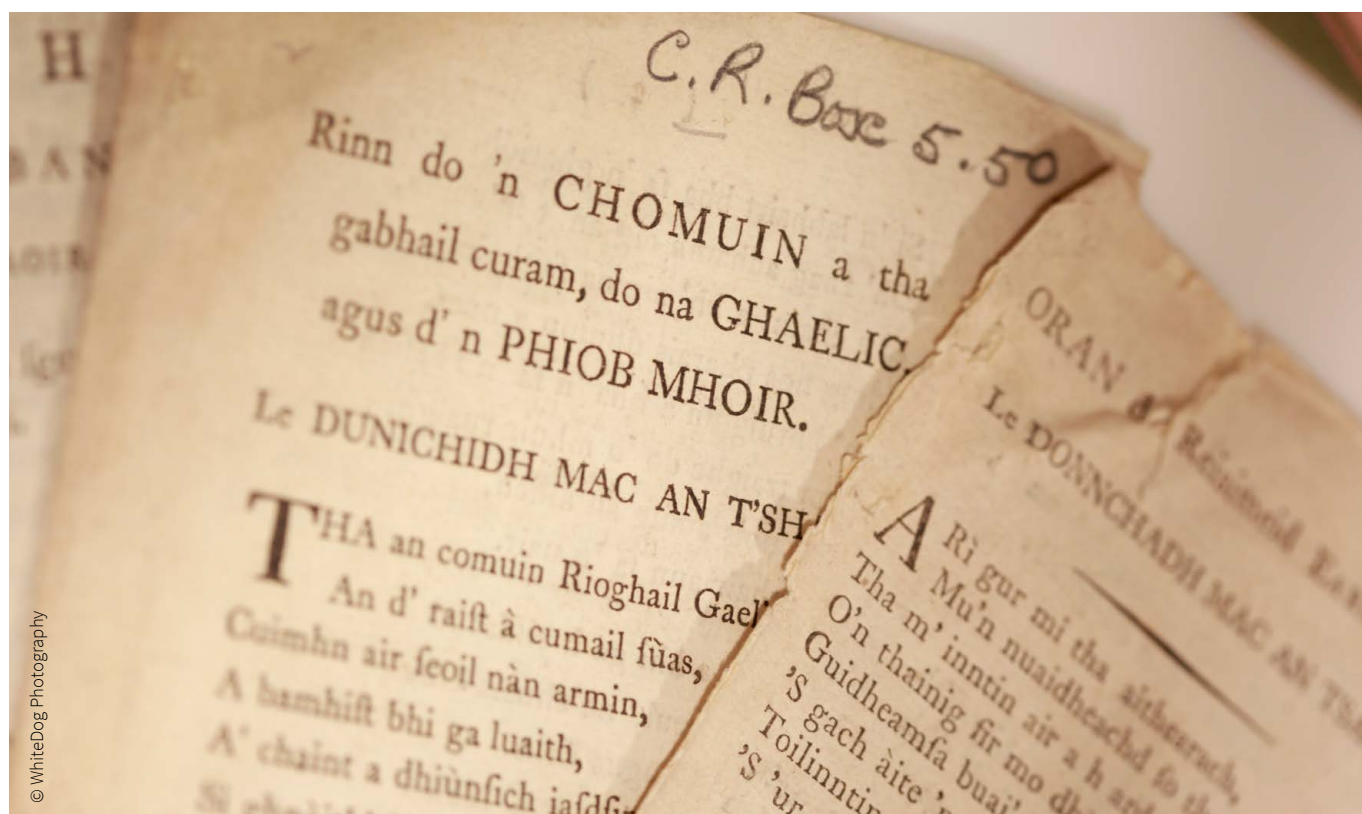 H
C. R. Box 5.50
Rinn do 'n CHOMUIN a tha
gabhail curam, do na GHAELIC,
agus d' n PHIOB MHOIR.
Le DUNICHIDH MAC AN T'SH
THA an comuin Rioghail Gael'
An d' raiſt à cumail ſùas,
Cuimhn air ſeoil nàn armin,
A bamhiſt bhi ga luaith,
A' chaint a dhiùnſich
ORAN
Le DONNCHADH MAC AN
A Rì gur mi tha aithearach,
Mu'n nuaidheachd ſo
Tha m' inntin air a h
O'n thainig fir mo
Guidheamſa buai'
'S gach àite
Toilinntin
'S 'ur
© WhiteDog Photography